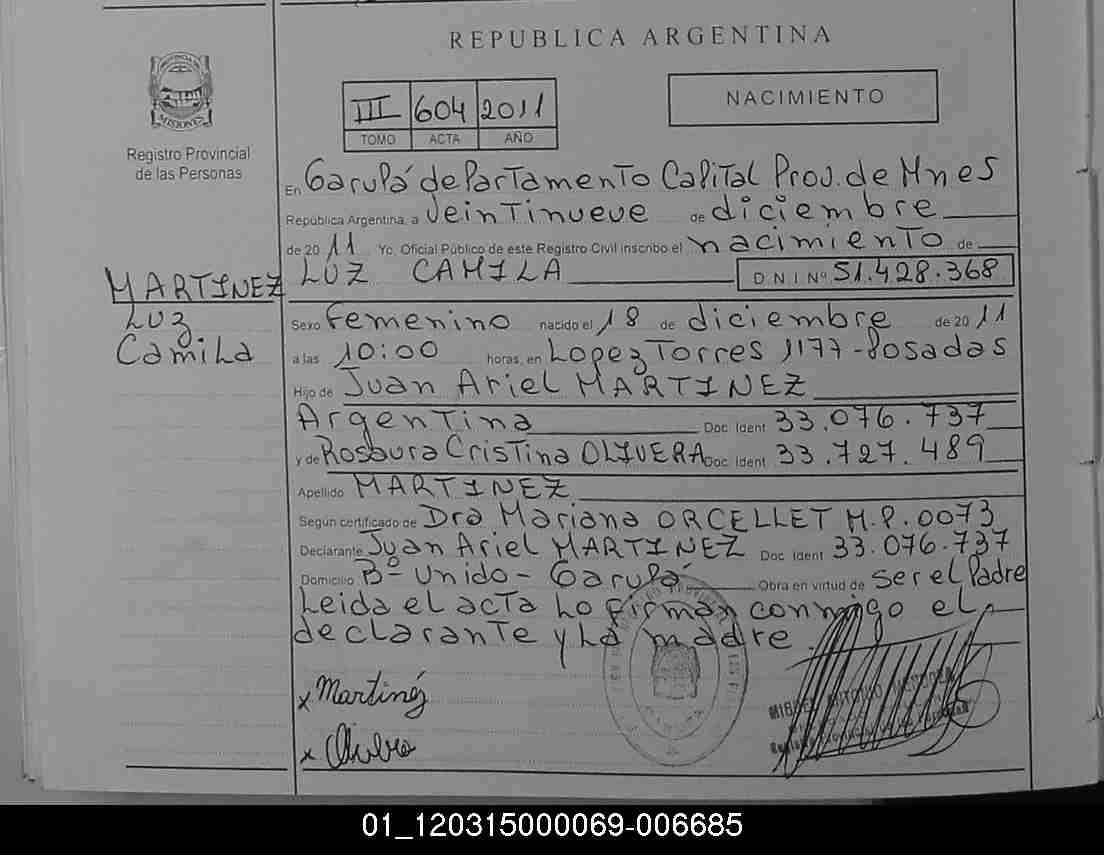 REPUBLICA ARGENTINA
PROVINCIA DE
MISIONES
Registro Provincial
de las Personas
III 604 2011
TOMO ACTA AÑO
NACIMIENTO
En Garupá departamento Capital Prov. de Mnes
República Argentina, a veintinueve de diciembre
de 2011 Yo, Oficial Público de este Registro Civil inscribo el nacimiento de
LUZ CAMILA D N I Nº 51.428.368
MARTINEZ
Luz
Camila
Sexo Femenino nacido el 18 de diciembre de 2011
a las 10:00 horas, en Lopez Torres 1177-Posadas
Hijo de Juan Ariel MARTINEZ
Argentina Doc. Ident 33.076.737
y de Rosaura Cristina OLIVERA Doc. Ident 33.727.489
Apellido MARTINEZ
Según certificado de Dra Mariana ORCELLET M.P.0073
Declarante Juan Ariel MARTINEZ Doc Ident 33.076.737
Domicilio Bº Unido- Garupá Obra en virtud de ser el Padre
Leida el acta lo firman conmigo el
declarante y la madre.
x Martinez
x Olivera
MIGUEL ANTONIO
01_120315000069-006685